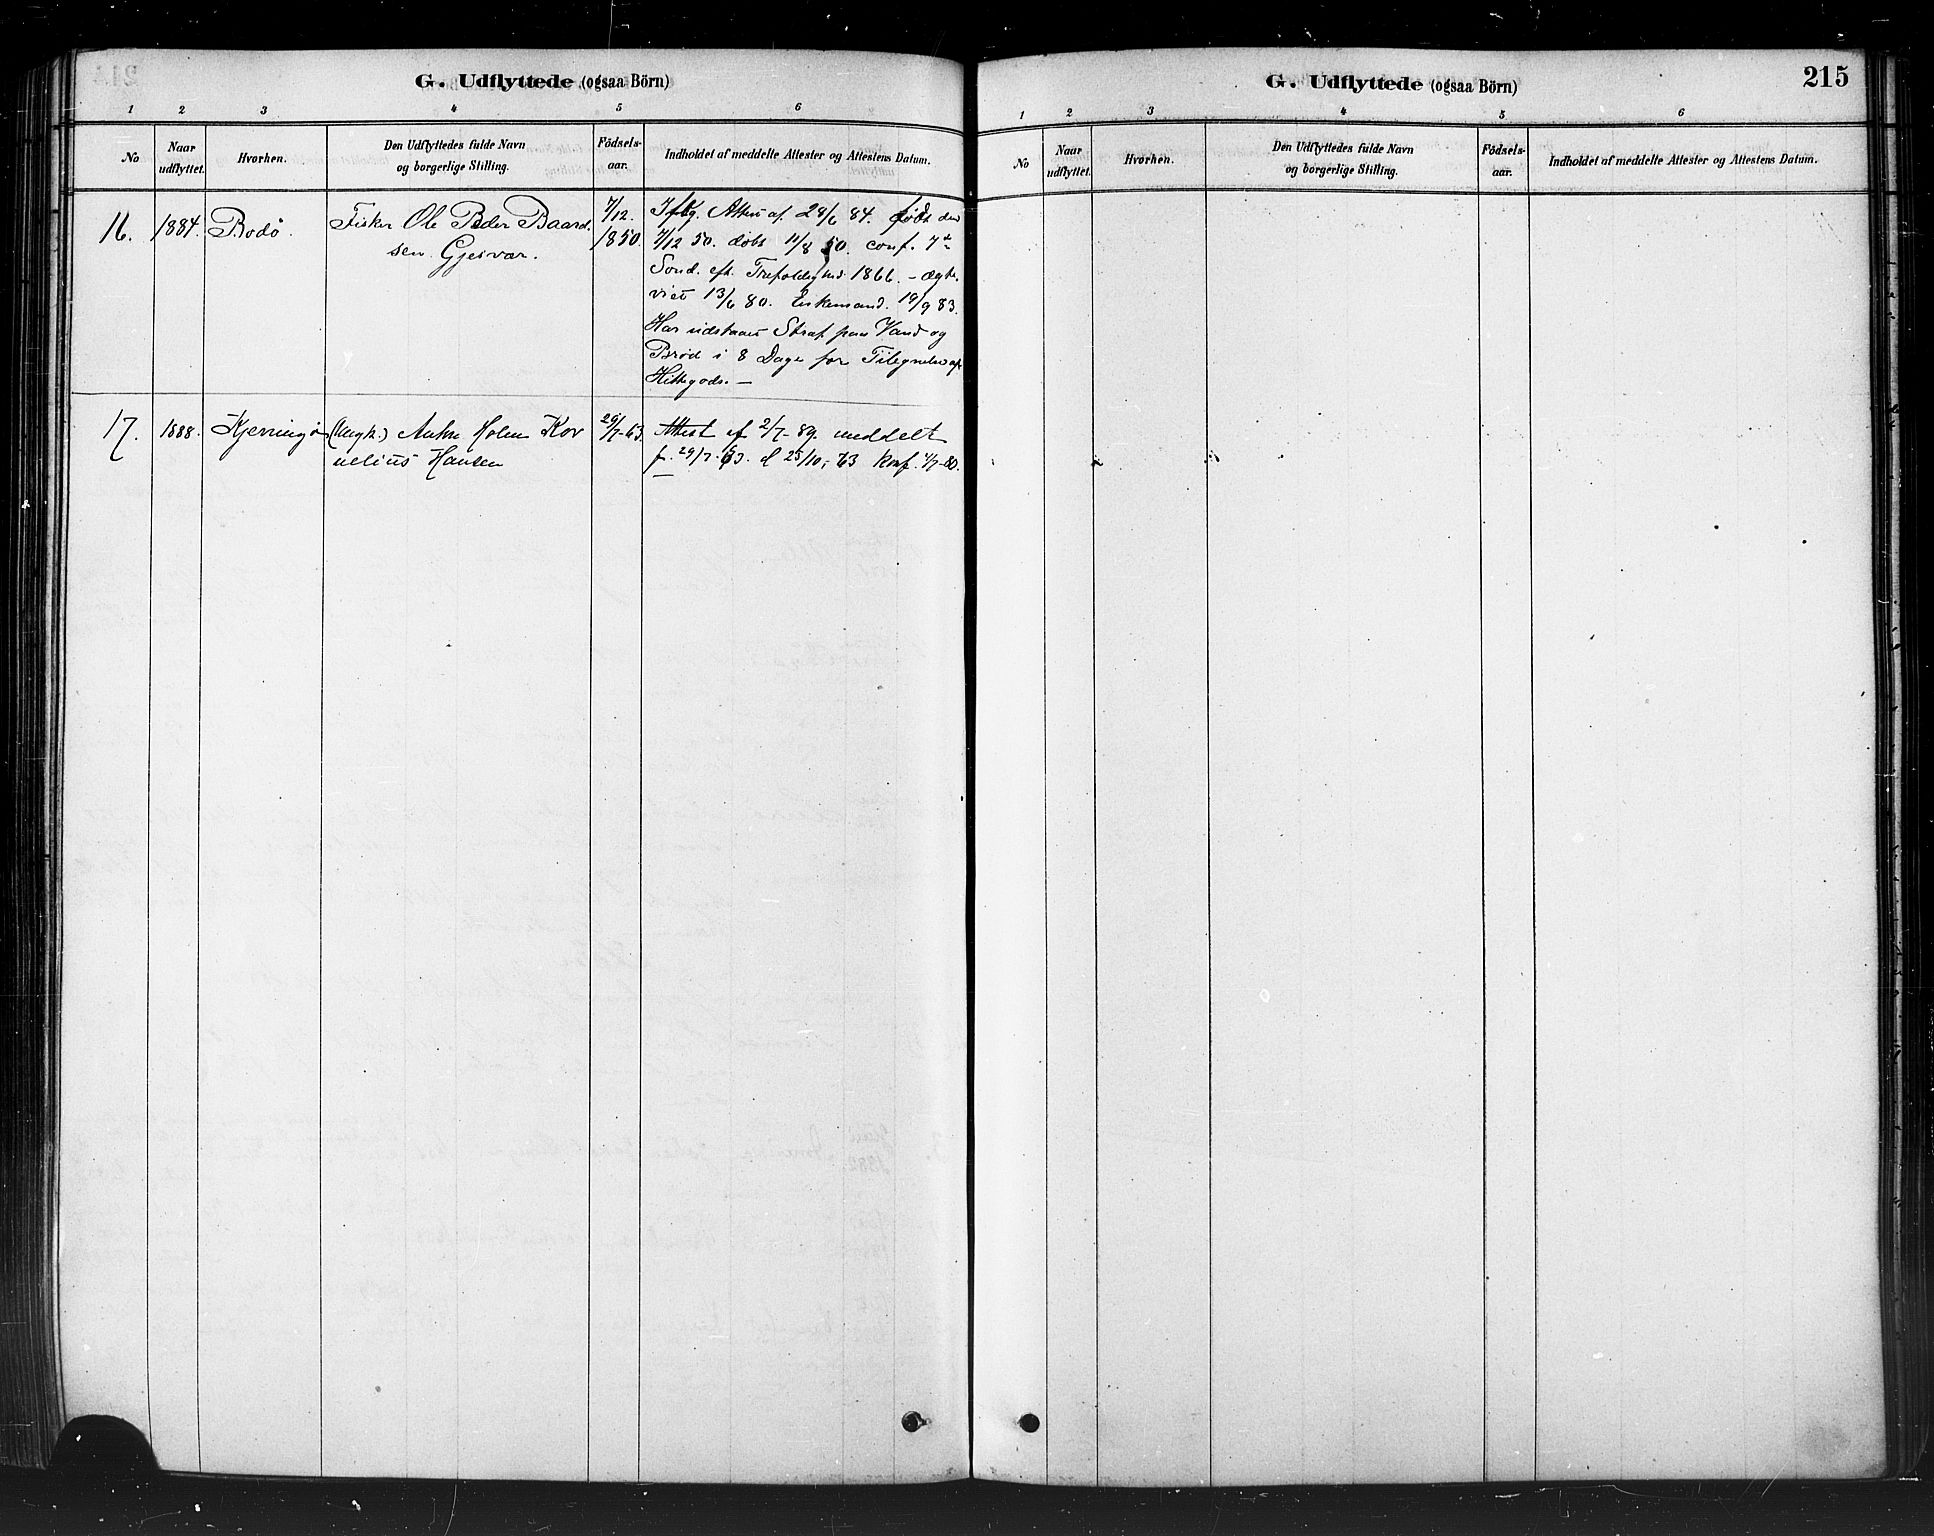 G. Udflyttede (ogsaa Börn)
1 2 3 4 5 6
No
Naar udflyttet.
Hvorhen.
Den Udflyttedes fulde Navn og borgerlige Stilling.
Födsels-aar.
Indholdet af meddelte Attester og Attestens Datum.
16. 1884. Bodö. Fisker Ole Peder Baard-
sen Gjesvar.
7/12.
1850.
Iflg. Attest af 28/6 84. født den
7/12 50. døbt 11/8 50. conf. 7de
Sønd. eft. Trefoldighed 1866. – ægte-
viet 13/6 80. Enkemand 19/9 83.
Har udstaaet Straf paa Vand og
Brød i 8 Dage for Tilegnelse af
Hittegods. –
17. 1888. Kjerringø (Ungk.) Holm Kor
nelius Hansen
29/7-63.
Attest af 2/7-89. meddelt
f. 29/7-63. d 25/10,-63 Konf. 4/7-80.
G. Udflyttede (ogsaa Börn)
215
1 2 3 4 5 6
No
Naar udflyttet.
Hvorhen.
Den Udflyttedes fulde Navn og borgerlige Stilling.
Födsels-aar.
Indholdet af meddelte Attester og Attestens Datum.